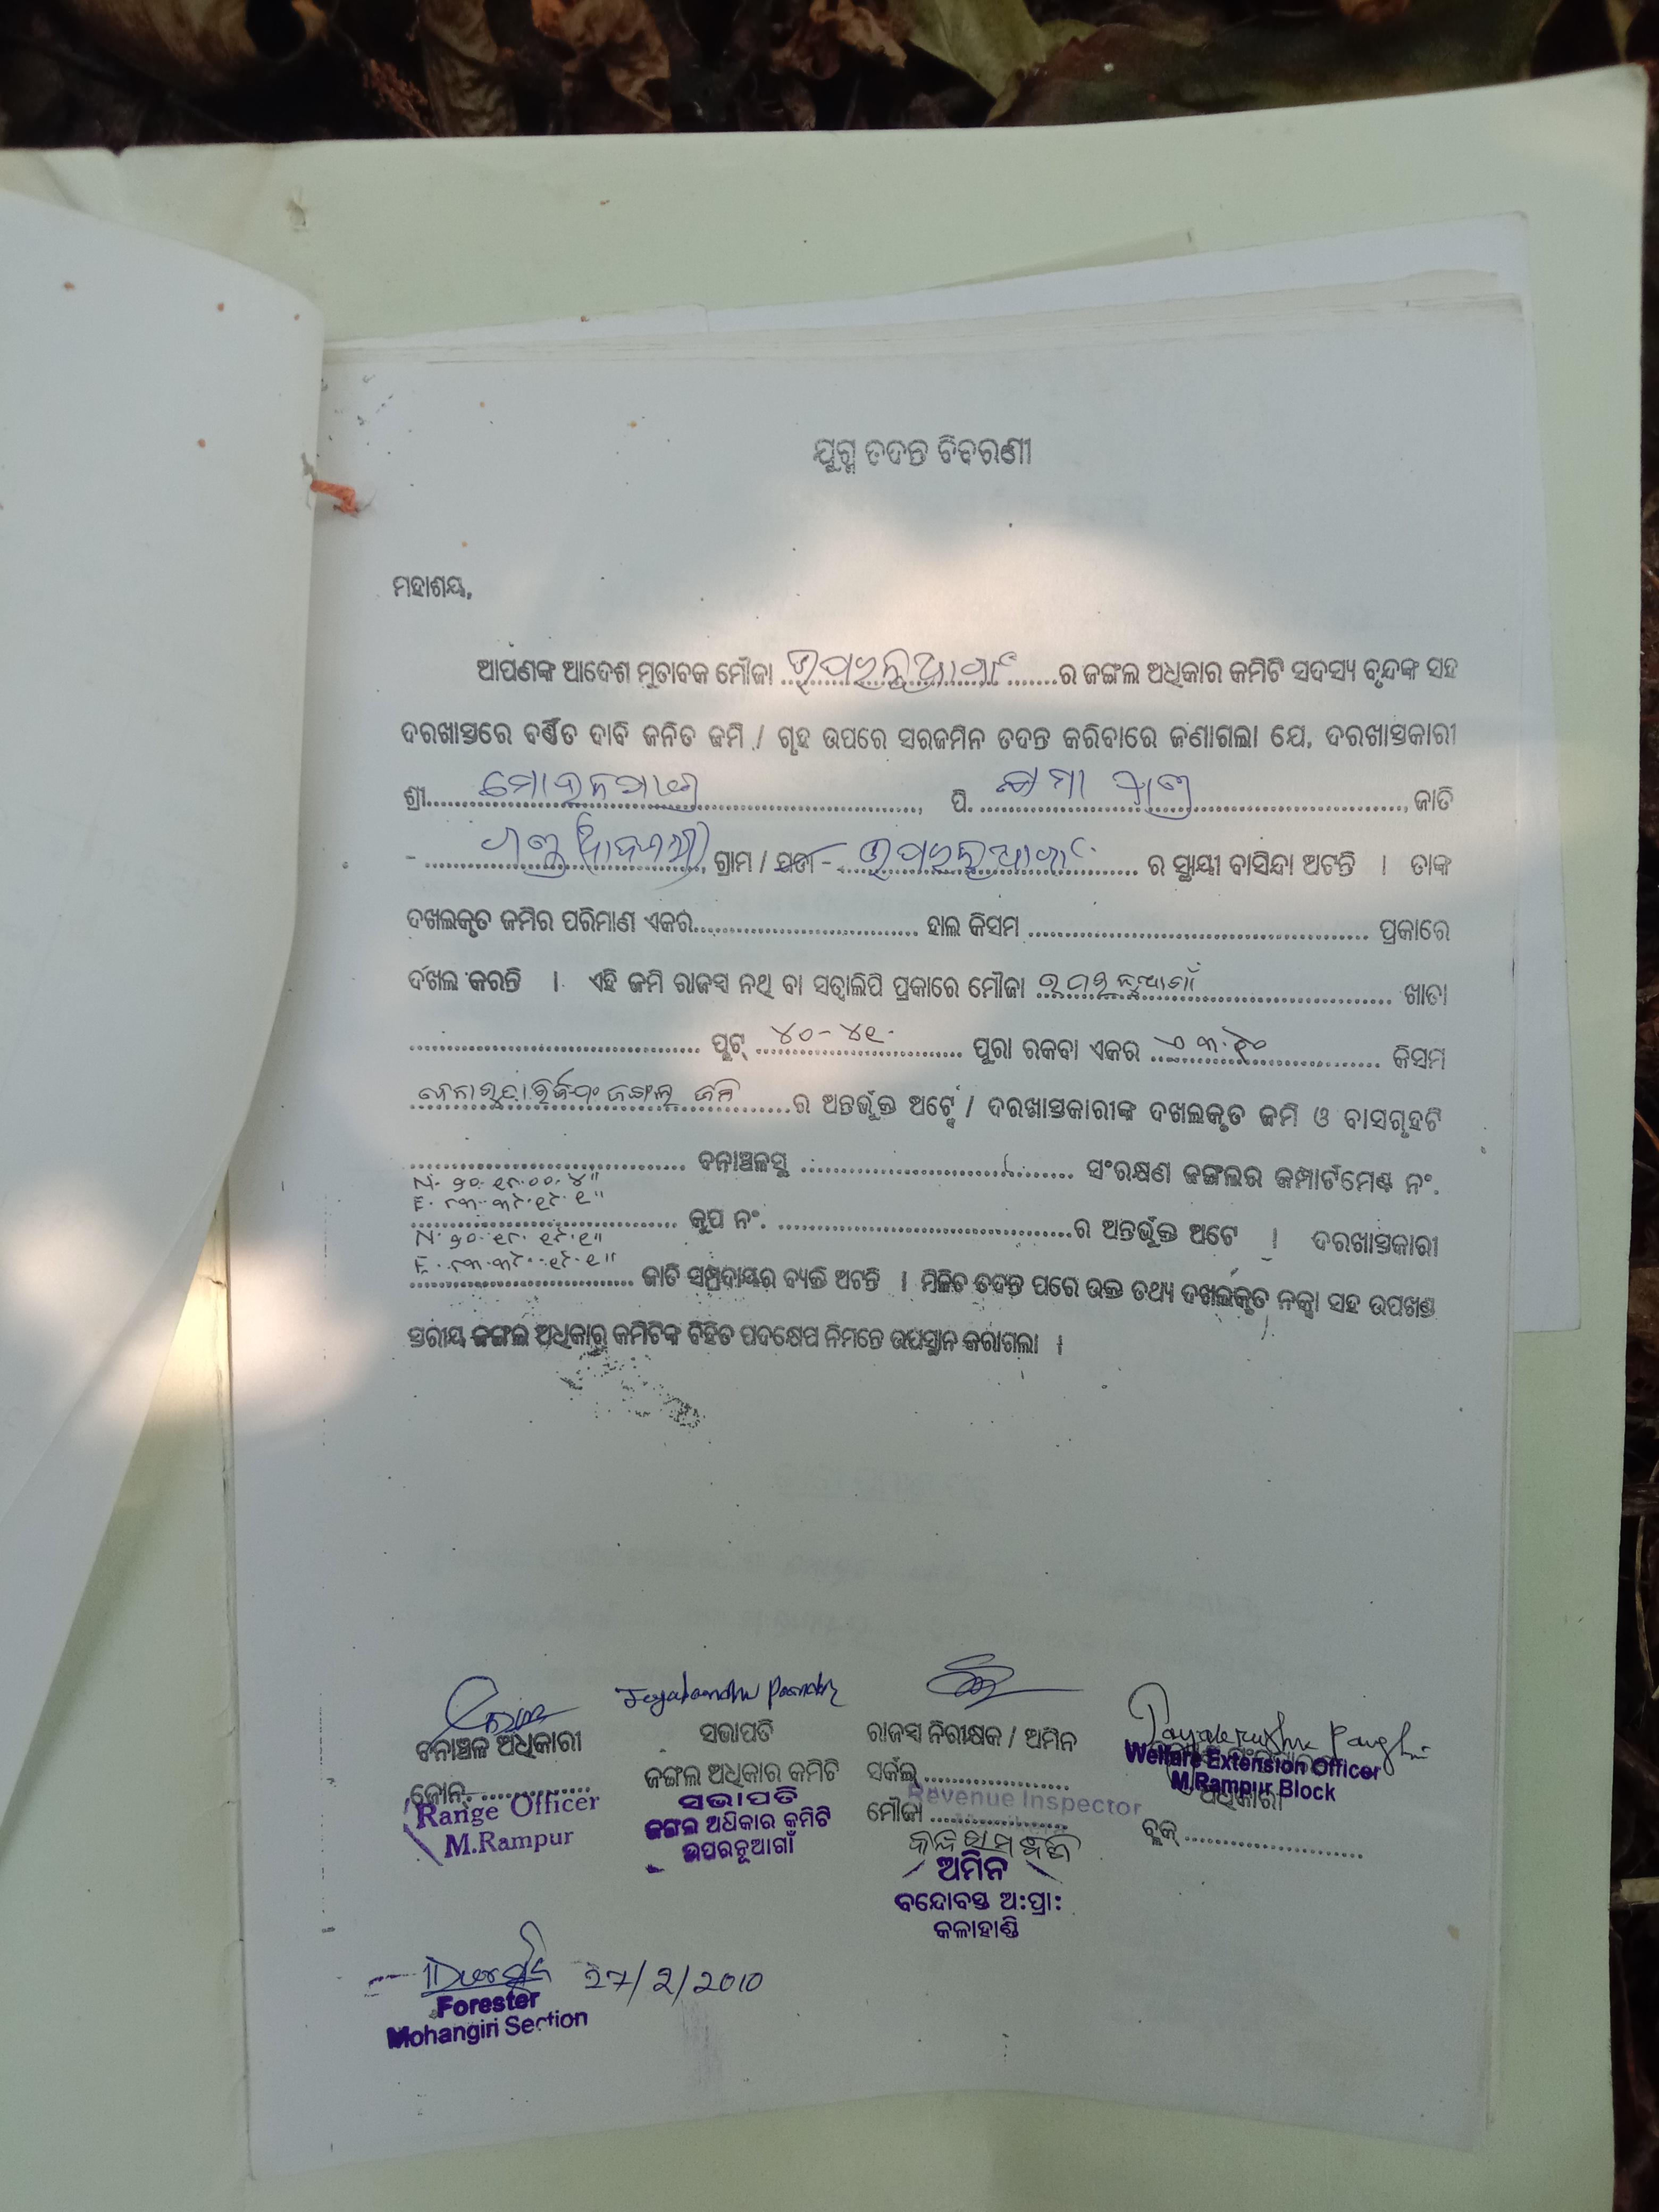 ଯୁଗ୍ମ ତଦନ୍ତ ବିବରଣୀ
ମହାଶୟ,
ଆପଣଙ୍କ ଆଦେଶ ମୁତାବକ ମୌଜା ଉପରନୁଆଗାଁ ର ଜଙ୍ଗଲ ଅଧିକାର କମିଟି ସଦସ୍ୟ ବୃନ୍ଦଙ୍କ ସହ
ଦରଖାସ୍ତରେ ବର୍ଣ୍ଣିତ ଦାବି ଜନିତ ଜମି / ଗୃହ ଉପରେ ସରଜମିନ ତଦନ୍ତ କରିବାରେ ଜଣାଗଲା ଯେ, ଦରଖାସ୍ତକାରୀ
ଶ୍ରୀ........, ପି. ........, ଜାତି
- ........, ଗ୍ରାମ / ଯଡା - ଉପରନୁଆଗାଁ ର ସ୍ଥାୟୀ ବାସିନ୍ଦା ଅଟନ୍ତି । ତାଙ୍କ
ଦଖଲକୃତ ଜମିର ପରିମାଣ ଏକର........ ହାଲ କିସମ ........ ପ୍ରକାରେ
ଦଖଲ କରନ୍ତି । ଏହି ଜମି ରାଜସ୍ୱ ନଥି ବା ସତ୍ୱାଲିପି ପ୍ରକାରେ ମୌଜା ଉପରନୁଆଗାଁ ଖାତା
........ ପ୍ଲଟ୍ ୪୦-୪୧ ପୁରା ରକବା ଏକର ........ କିସମ
ଜଙ୍ଗଲ ଜମି ର ଅନ୍ତର୍ଭୁକ୍ତ ଅଟେ / ଦରଖାସ୍ତକାରୀଙ୍କ ଦଖଲକୃତ ଜମି ଓ ବାସଗୃହଟି
........ ବନାଞ୍ଚଳସ୍ଥ ........ ସଂରକ୍ଷଣ ଜଙ୍ଗଲର କମ୍ପାର୍ଟମେଣ୍ଟ ନଂ.
........ କୁପ ନଂ. ........ର ଅନ୍ତର୍ଭୁକ୍ତ ଅଟେ । ଦରଖାସ୍ତକାରୀ
........ ଜାତି ସମ୍ପ୍ରଦାୟର ବ୍ୟକ୍ତି ଅଟନ୍ତି । ମିଳିତ ତଦନ୍ତ ପରେ ଉକ୍ତ ତଥ୍ୟ ଦଖଲକୃତ ନକ୍ସା ସହ ଉପଖଣ୍ଡ
ସ୍ତରୀୟ ଜଙ୍ଗଲ ଅଧିକାର କମିଟିଙ୍କ ବିହିତ ପଦକ୍ଷେପ ନିମନ୍ତେ ଉପସ୍ଥାନ କରାଗଲା ।
ବନାଞ୍ଚଳ ଅଧିକାରୀ
ଜୋନ୍ ........
Range Officer
M.Rampur
ସଭାପତି
ଜଙ୍ଗଲ ଅଧିକାର କମିଟି
ସଭାପତି
ଜଙ୍ଗଲ ଅଧିକାର କମିଟି
ଉପରନୂଆଗାଁ
ରାଜସ୍ୱ ନିରୀକ୍ଷକ / ଅମିନ
ସର୍କଲ୍ ........
Revenue Inspector
ମୌଜା ........
ଅମିନ
ବନ୍ଦୋବସ୍ତ ଅ:ପ୍ରା:
କଳାହାଣ୍ଡି
Welfare Extension Officer
M.Rampur Block
ଅଧିକାରୀ
ବ୍ଲକ୍ ........
27/2/2010
Forester
Mohangiri Section